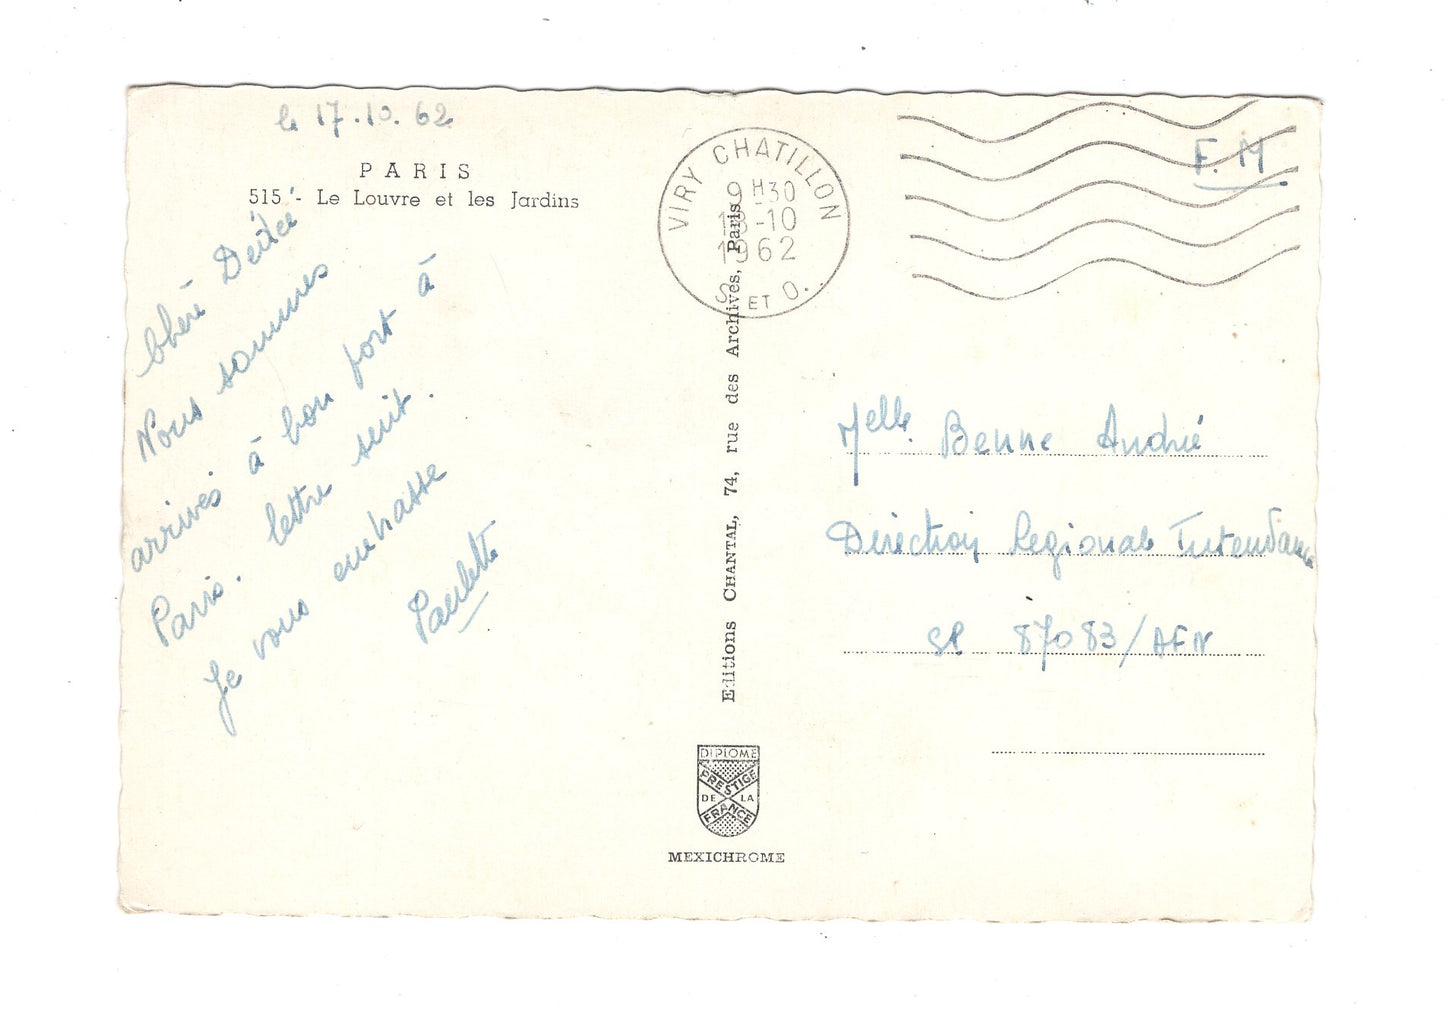 le 17.10.62
PARIS
515 - Le Louvre et les Jardins
Chère Dédée
Nous sommes
arrivés à bon port à
Paris. lettre suit.
Je vous embrasse
Paulette
VIRY CHATILLON
9H30
18-10
1962
S. ET O.
F.M
Editions CHANTAL, 74, rue des Archives, Paris
Melle Benne André
Direction Regionale Intendance
SP 87083/AFN
DIPLOME
PRESTIGE
DE LA
FRANCE
MEXICHROME